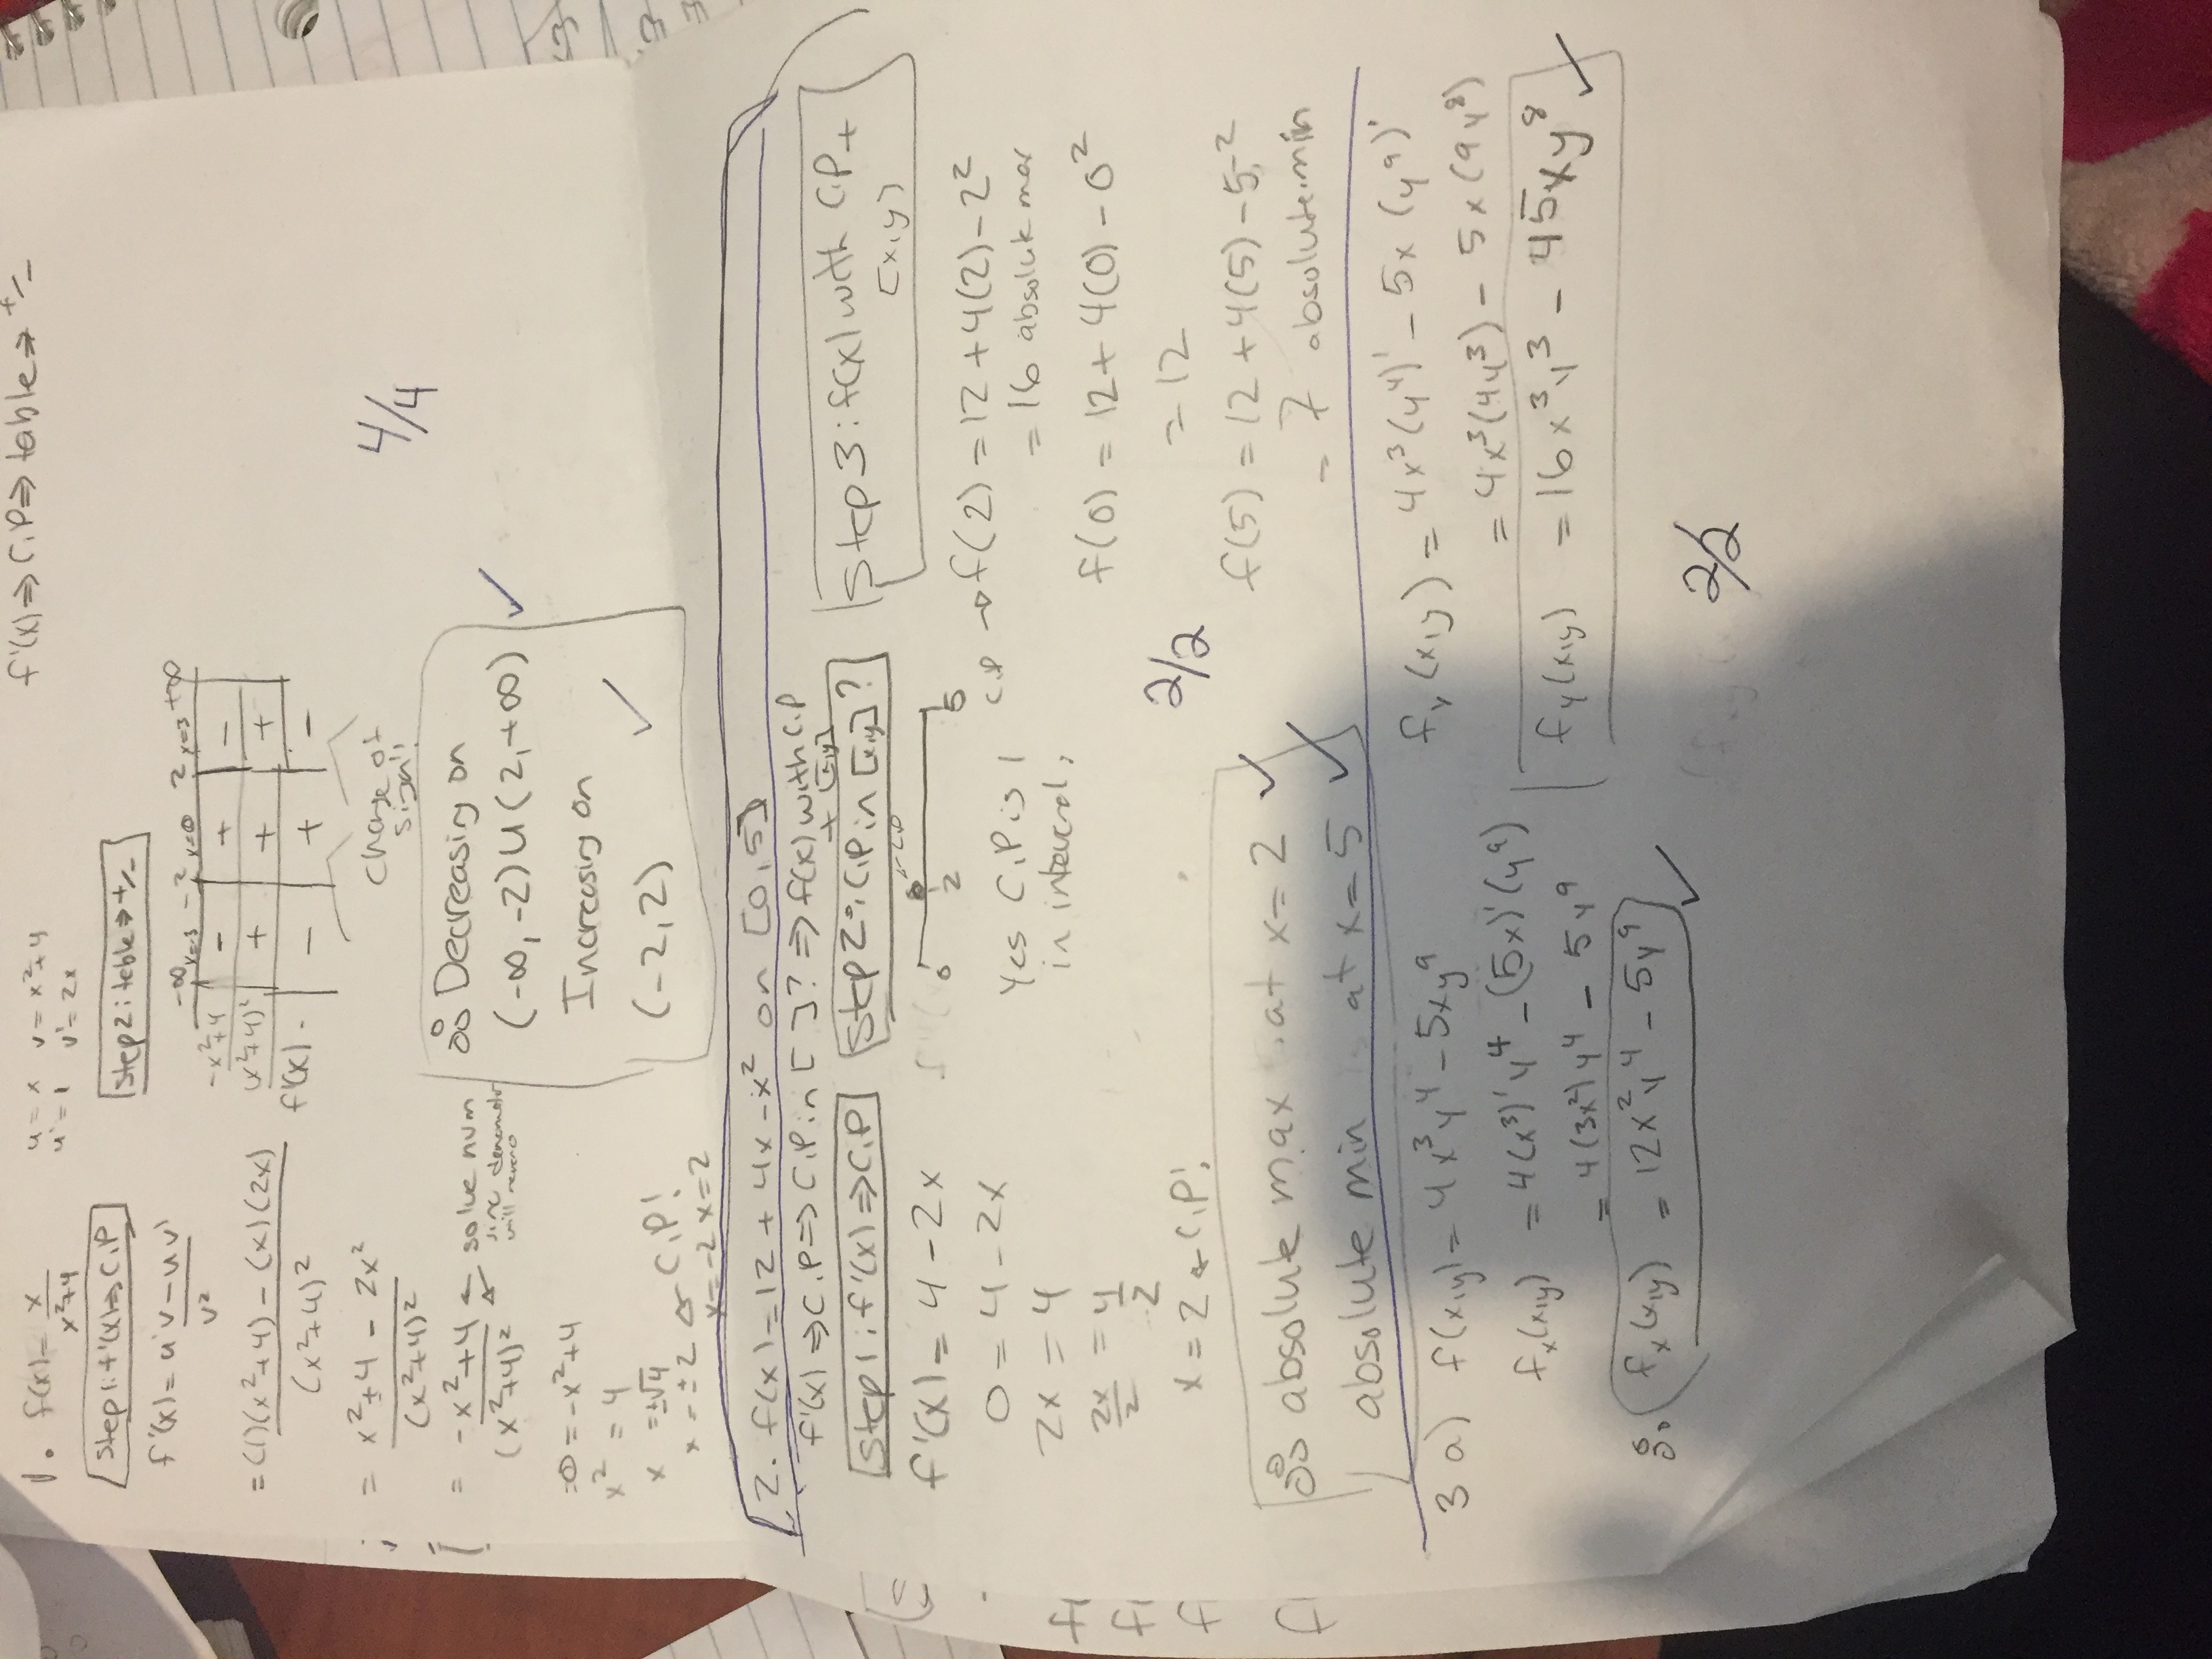 f'(x) ⇒ C.P ⇒ table ⇒ +/-
1. f(x) = x/(x²+4)
u = x v = x²+4
u' = 1 v' = 2x
Step 1: f'(x) ⇒ C.P
f'(x) = (u'v - uv')/v²
= ((1)(x²+4) - (x)(2x))/(x²+4)²
= (x²+4 - 2x²)/(x²+4)²
= (-x²+4)/(x²+4)² ← solve num
since denominator
will never 0
0 = -x²+4
x² = 4
x = ±√4
x = ±2 ← C.P!
x = -2 x = 2
Step 2: table ⇒ +/-
-∞ x=-3 -2 x=0 2 x=3 +∞
-x²+4 - + -
(x²+4)² + + +
f'(x) - + -
Change of
sign!
∴ Decreasing on
(-∞, -2) U (2, +∞) ✓
Increasing on
(-2, 2) ✓
4/4
2. f(x) = 12 + 4x - x² on [0, 5]
f'(x) ⇒ C.P ⇒ C.P in [ ]? ⇒ f(x) with C.P
+ [x,y]
Step 1: f'(x) ⇒ C.P
f'(x) = 4 - 2x
0 = 4 - 2x
2x = 4
2x/2 = 4/2
x = 2 ← C.P!
Step 2: C.P in [x,y]?
C.P
0 2 5
Yes C.P is
in interval!
Step 3: f(x) with C.P +
[x,y]
C.P → f(2) = 12 + 4(2) - 2²
= 16 absolute max
f(0) = 12 + 4(0) - 0²
= 12
f(5) = 12 + 4(5) - 5²
= 7 absolute min
2/2
∴ absolute max at x = 2 ✓
absolute min at x = 5 ✓
3 a) f(x,y) = 4x³y⁴ - 5xy⁹
fx(x,y) = 4(x³)'y⁴ - (5x)'(y⁹)
= 4(3x²)y⁴ - 5y⁹
∴ fx(x,y) = 12x²y⁴ - 5y⁹ ✓
fy(x,y) = 4x³(y⁴)' - 5x(y⁹)'
= 4x³(4y³) - 5x(9y⁸)
fy(x,y) = 16x³y³ - 45xy⁸ ✓
2/2